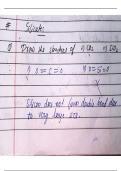 # Silicates
Q Draw the structure of i) CO₂ ii) SiO₂
i) O=C=O ii) O=Si=O
Silicon does not form double bond due
to very large size.